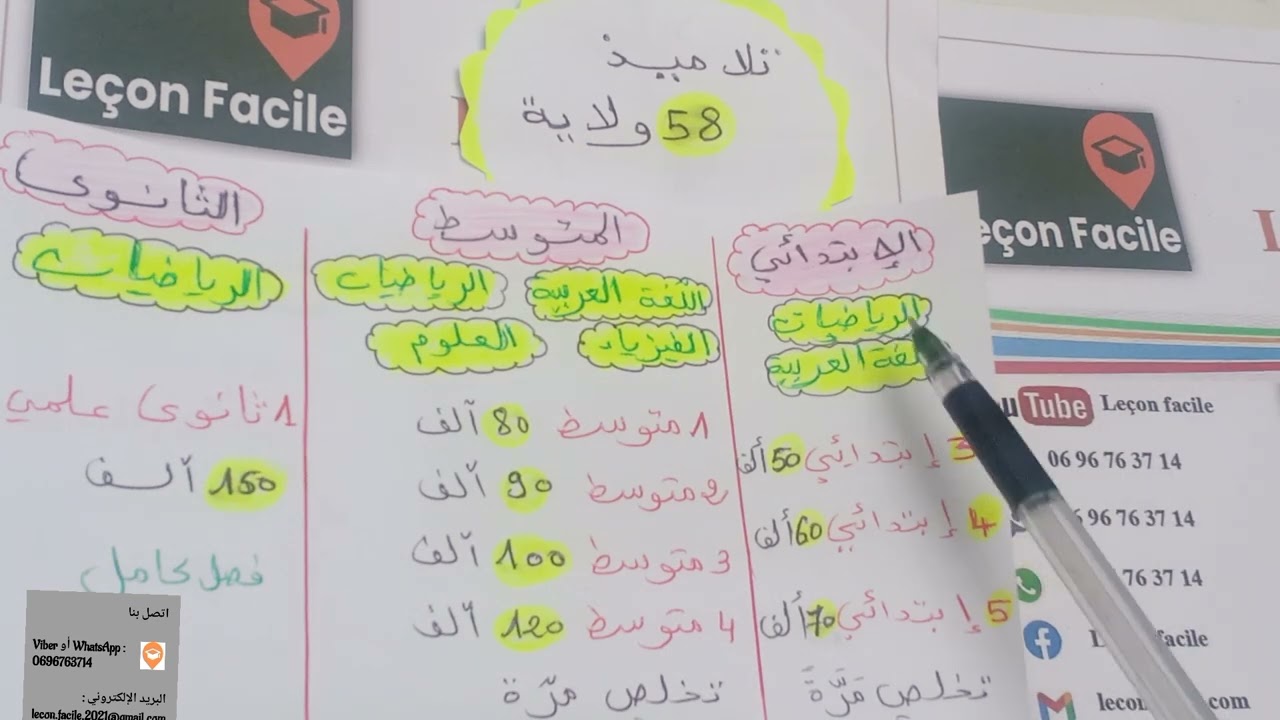 Leçon Facile
تلاميذ
58 ولاية
Leçon Facile
الإبتدائي
الرياضيات
العربية
3 إبتدائي 50 ألف
4 إبتدائي 60 ألف
5 إبتدائي 70 ألف
تخلص مرّة
المتوسط
اللغة العربية
الرياضيات
الفيزياء
العلوم
1 متوسط 80 ألف
2 متوسط 90 ألف
3 متوسط 100 ألف
4 متوسط 120 ألف
تخلص مرّة
الثانوي
الرياضيات
1 ثانوي علمي
150 ألف
فصل كامل
Tube Leçon facile
06 96 76 37 14
96 76 37 14
76 37 14
facile
com
اتصل بنا
Viber أو WhatsApp :
0696763714
البريد الإلكتروني :
lecon.facile.2021@gmail.com